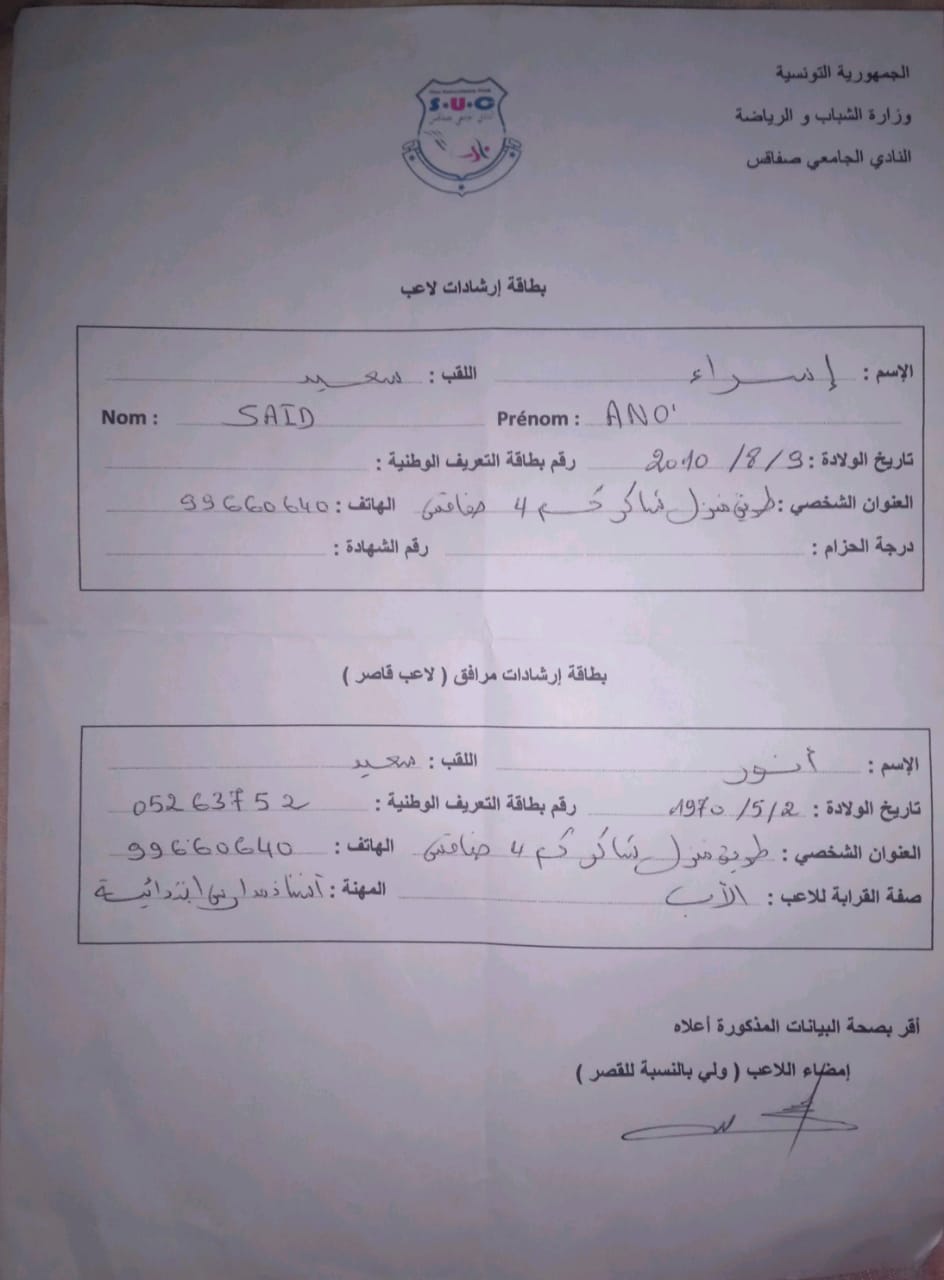 الجمهورية التونسية
وزارة الشباب و الرياضة
النادي الجامعي صفاقس
S.U.C
بطاقة إرشادات لاعب
الإسم : إسراء اللقب : سعيد
Nom : SAID Prénom : ANO'
تاريخ الولادة : 2010 /8 /9 رقم بطاقة التعريف الوطنية :
العنوان الشخصي : طريق منزل شاكر كم 4 صفاقس الهاتف : 99660640
درجة الحزام : رقم الشهادة :
بطاقة إرشادات مرافق ( لاعب قاصر )
الإسم : أنور اللقب : سعيد
تاريخ الولادة : 1970 /5 /2 رقم بطاقة التعريف الوطنية : 05263752
العنوان الشخصي : طريق منزل شاكر كم 4 صفاقس الهاتف : 99660640
صفة القرابة للاعب : الأب المهنة : أستاذ مدارس ابتدائية
أقر بصحة البيانات المذكورة أعلاه
إمضاء اللاعب ( ولي بالنسبة للقصر )